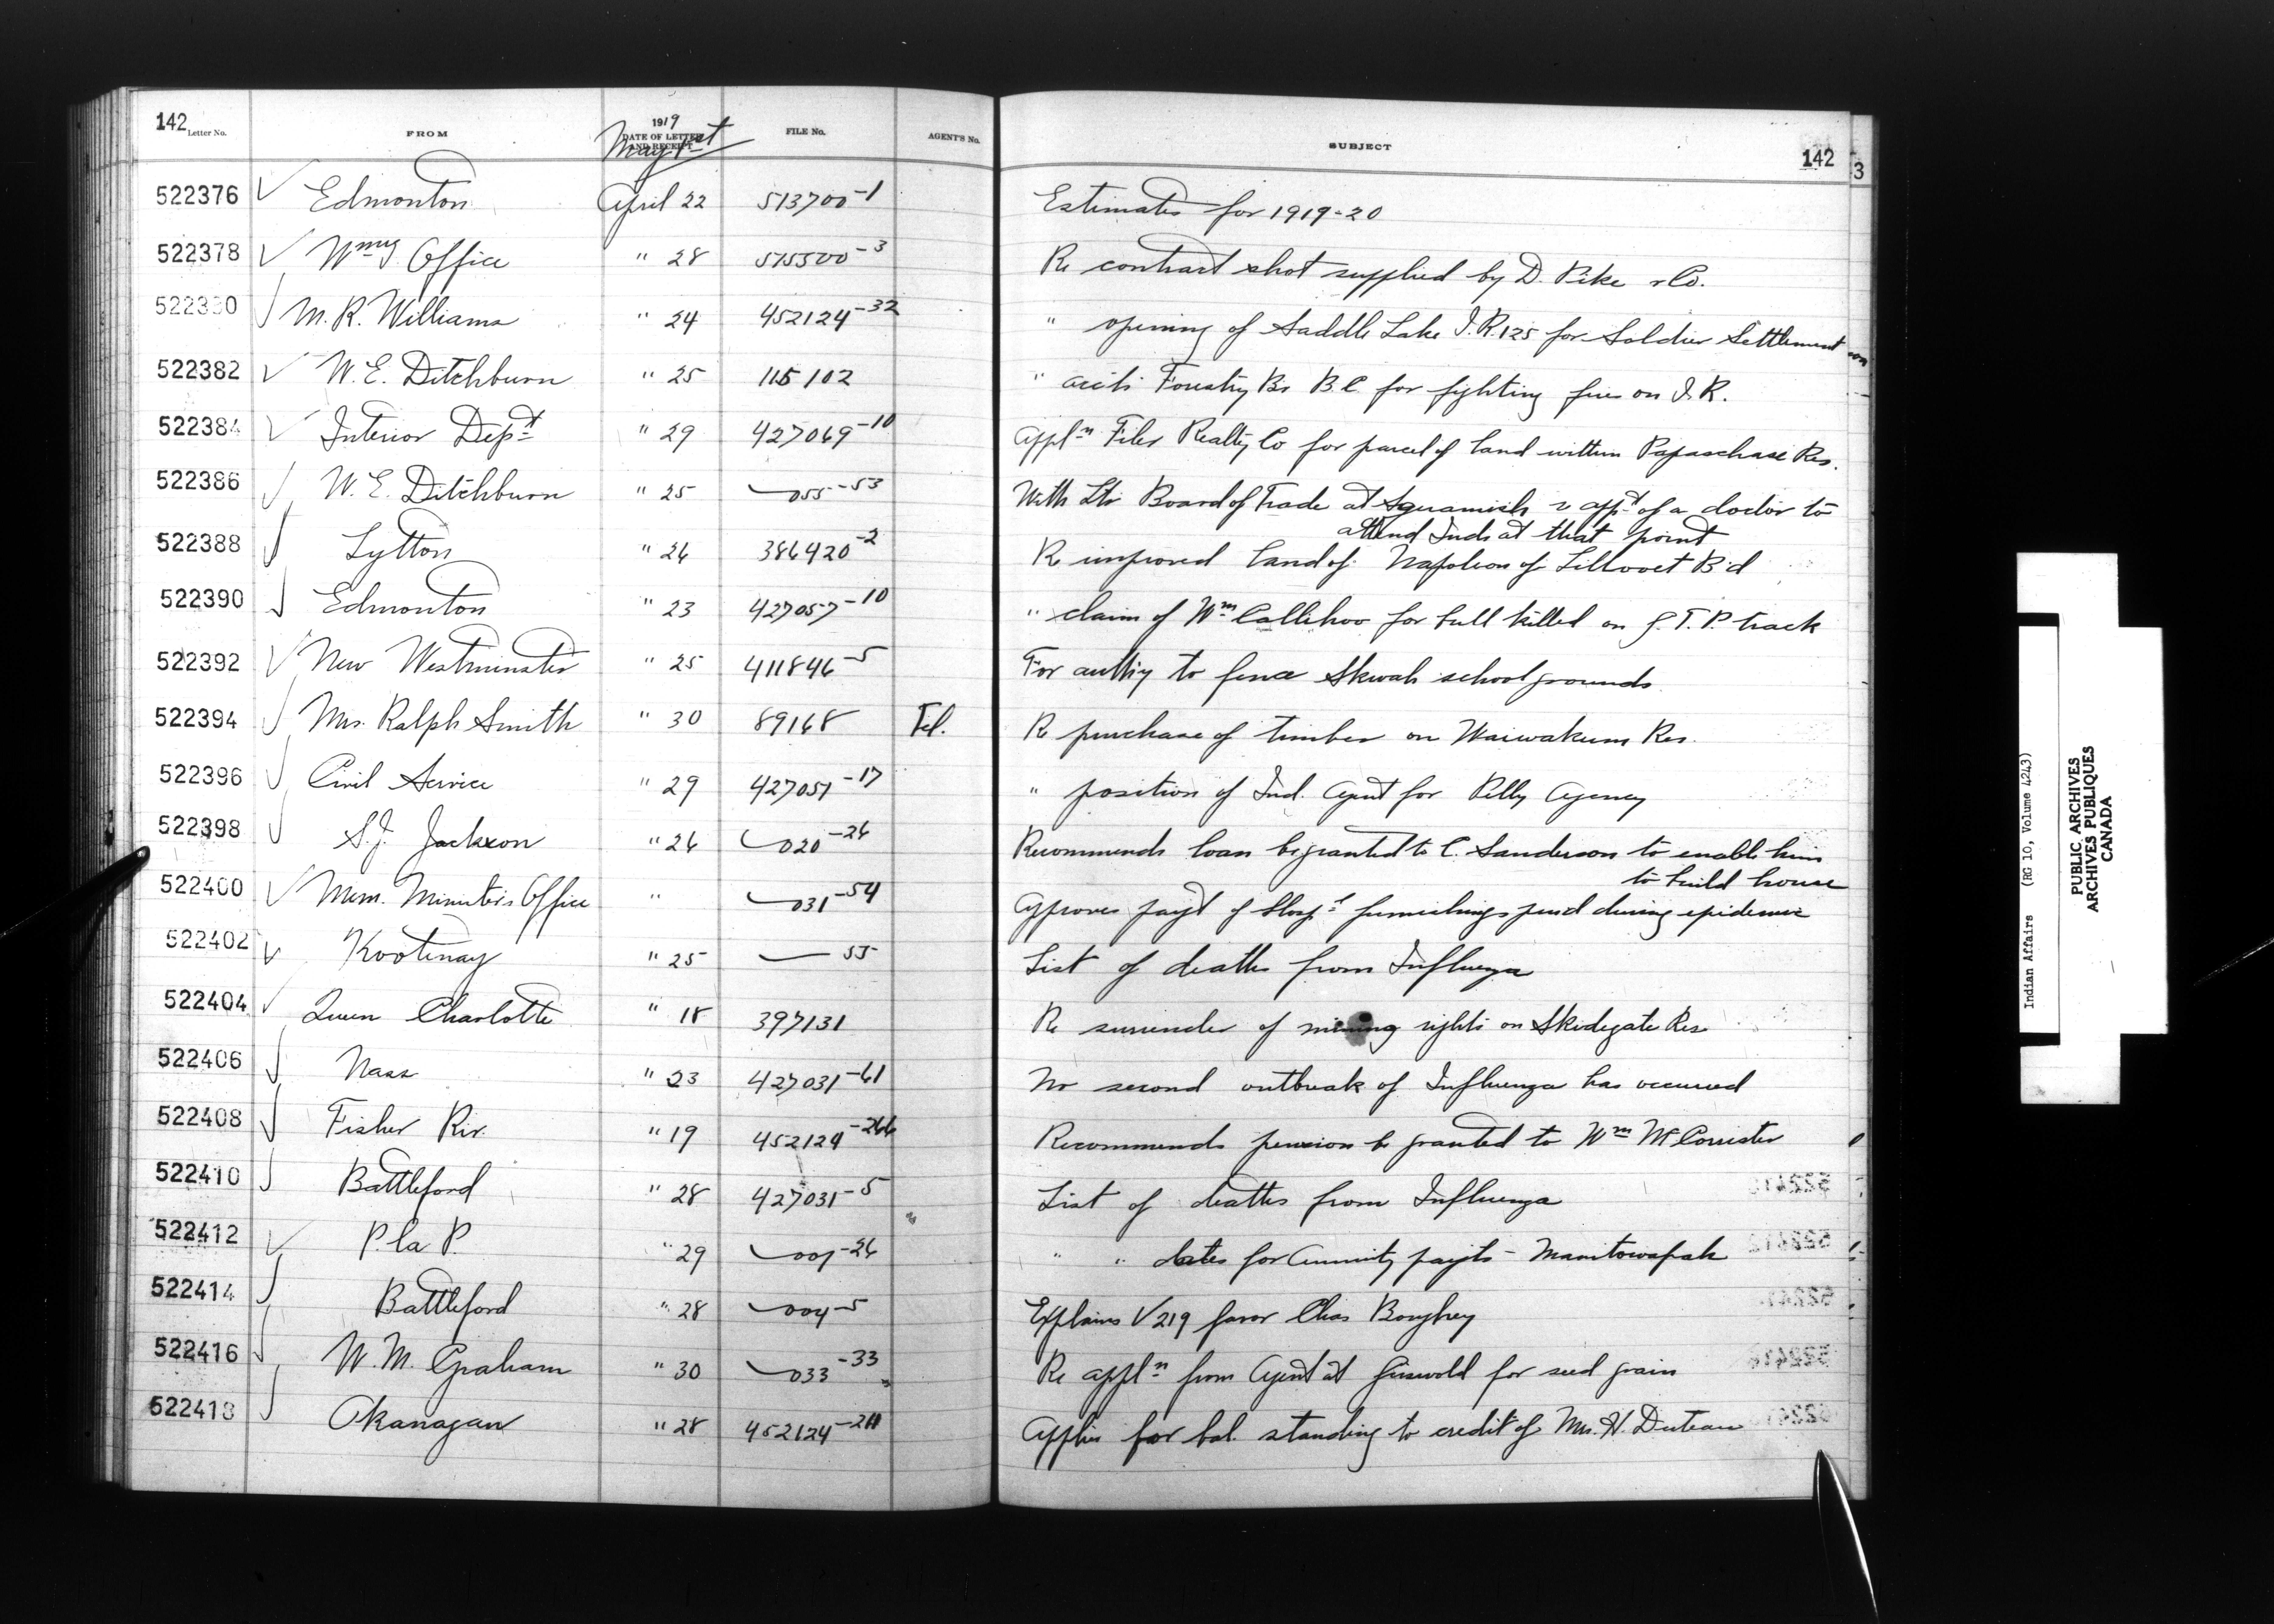 142 Letter No. FROM 1919 DATE OF LETTER AND RECEIPT FILE No. AGENT'S No. SUBJECT 142
May 1st
3
522376 Edmonton April 22 513700-1 Estimates for 1919-20
522378 Wmy Office " 28 515500-3 Re contract shot supplied by D. Pike & Co.
522380 M. R. Williams " 24 452124-32 " opening of Saddle Lake I.R. 125 for Soldier Settlement
522382 W. E. Ditchburn " 25 115102 " accts Forestry Br B.C. for fighting fires on I.R.
522384 Interior Dept " 29 427069-10 Appln Filer Realty Co for parcel of land within Papaschase Res.
522386 W. E. Ditchburn " 25 055-53 With Ltr Board of Trade at Squamish re appt of a doctor to
attend Inds at that point
522388 Lytton " 26 386420-2 Re improved land of Napoleon of Lillooet B'd
522390 Edmonton " 23 427057-10 " claim of Wm Callihoo for bull killed on G.T.P. track
522392 New Westminster " 25 411846-5 For authy to fence Skwah school grounds
522394 Mrs. Ralph Smith " 30 89168 Tel. Re purchase of timber on Waiwakum Res.
522396 Civil Service " 29 427051-17 " position of Ind. Agent for Pelly Agency
522398 S. J. Jackson " 26 020-26 Recommends loan be granted to C. Sanderson to enable him
to build house
522400 Mem. Minister's Office " 031-54 Approves payt of Hospl furnishings purd during epidemic
522402 Kootenay " 25 55 List of deaths from Influenza
522404 Queen Charlotte " 18 397131 Re surrender of mining rights on Skidegate Res
522406 Nass " 23 427031-61 No second outbreak of Influenza has occurred
522408 Fisher Riv. " 19 452124-266 Recommends pension be granted to Wm McCorrister
522410 Battleford " 28 427031-5 List of deaths from Influenza
522412 P. la P. " 29 001-26 " " dates for Annuity payts - Manitowapah
522414 Battleford " 28 004-5 Explains V 219 favor Chas Boughey
522416 W. M. Graham " 30 033-33 Re appln from Agent at Griswold for seed grain
522418 Okanagan " 28 452124-211 Applies for bal. standing to credit of Mrs. H. Duteau
Indian Affairs (RG 10, Volume 4243)
PUBLIC ARCHIVES
ARCHIVES PUBLIQUES
CANADA